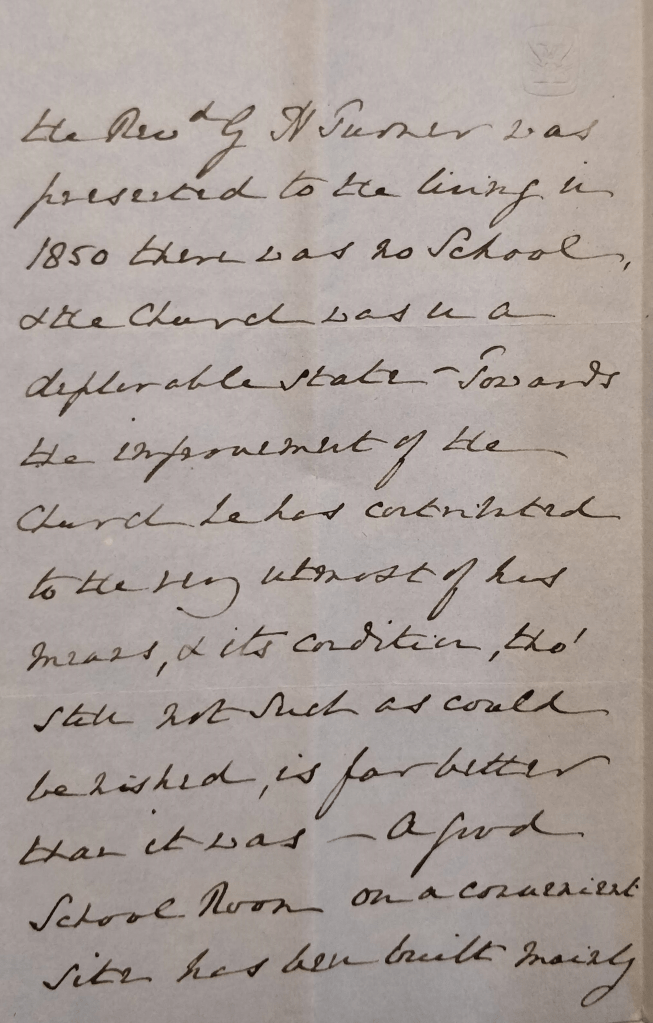 the Revd G H Turner was
presented to the living in
1850 there was no School,
& the Church was in a
deplorable state - Towards
the improvement of the
Church he has contributed
to the very utmost of his
means, & its condition, tho'
still not such as could
be wished, is far better
than it was - A good
School Room on a convenient
site has been built mainly